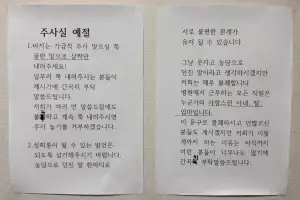 주사실 예절
1.바지는 가급적 주사 맞으실 쪽
골반 밑으로 살짝만
내려주세요!
일부러 확 내려주시는 분들이
계시기에 간곡히 부탁
말씀드립니다.
저희가 여러 번 말씀드림에도
불구하고 계속 확 내려주시면
주사 놓기를 거부하겠습니다.
2.성희롱이 될 수 있는 발언은
되도록 삼가해주시기 바랍니다.
농담으로 던진 말 한마디로
서로 불편한 관계가
유지 될 수 있습니다
그냥 웃자고 농담으로
던진 말이라고 생각하시겠지만
저희는 매우 불쾌합니다
병원에서 근무하는 모든 직원은
누군가의 사랑스런 아내, 딸,
엄마입니다.
이 문구로 불쾌하시고 언짢으신
분들도 계시겠지만 저희가 이렇
게까지 하는 이유는 아직까지
이런 분들이 너무나도 많기에
간곡히 부탁말씀드립니다.